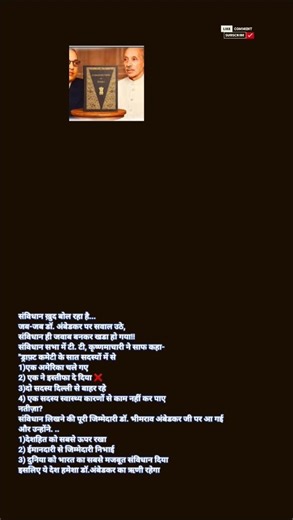 LIKE COMMENT
SUBSCRIBE
संविधान ख़ुद बोल रहा है...
जब-जब डॉ. अंबेडकर पर सवाल उठे,
संविधान ही जवाब बनकर खडा हो गया!!
संविधान सभा में टी. टी, कृष्णमाचारी ने साफ कहा-
"ड्राफ़्ट कमेटी के सात सदस्यों में से
1)एक अमेरिका चले गए
2) एक ने इस्तीफा दे दिया ❌
3)दो सदस्य दिल्ली से बाहर रहे
4) एक सदस्य स्वास्थ्य कारणों से काम नहीं कर पाए
नतीज़ा?
संविधान लिखने की पूरी जिम्मेदारी डॉ. भीमराव अंबेडकर जी पर आ गई
और उन्होंने. ..
1)देशहित को सबसे ऊपर रखा
2) ईमानदारी से जिम्मेदारी निभाई
3) दुनिया को भारत का सबसे मजबूत संविधान दिया
इसलिए ये देश हमेशा डॉ.अंबेडकर का ऋणी रहेगा